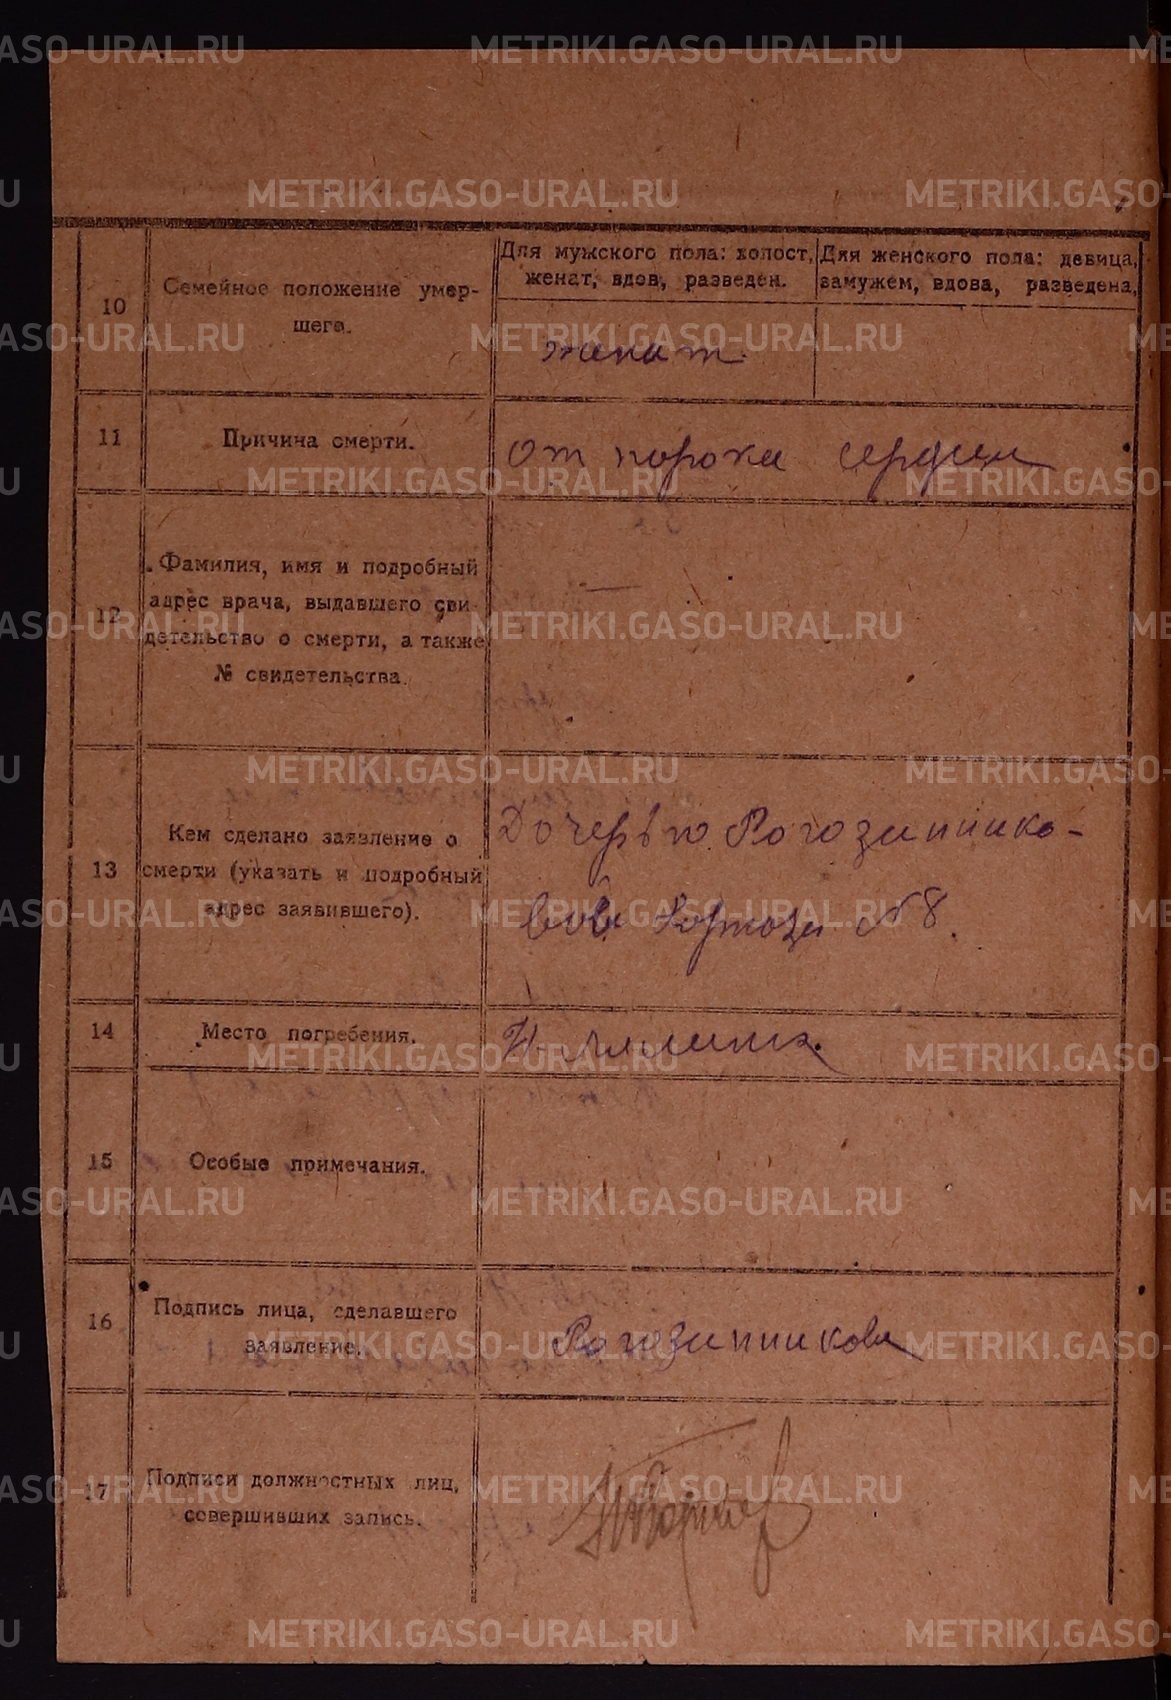 METRIKI.GASO-URAL.RU
Для мужского пола: холост,
женат, вдов, разведен.
Для женского пола: девица,
замужем, вдова, разведена,
10
Семейное положение умер-
шего.
женат.
11
Причина смерти.
От порока сердца
12
Фамилия, имя и подробный
адрес врача, выдавшего сви-
детельство о смерти, а также
№ свидетельства.
—
13
Кем сделано заявление о
смерти (указать и подробный
адрес заявившего).
Дочерью Рогозиннико-
вой №8.
14
Место погребения.
Н-Лялинск.
15
Особые примечания.
16
Подпись лица, сделавшего
заявление.
Рогозинникова
17
Подписи должностных лиц,
совершивших запись.